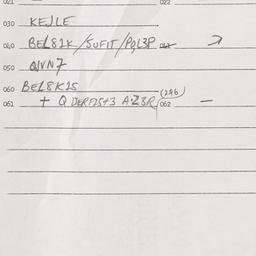 021 022
030 KEJLE
040 BEL81K/SUFIT/PQL3P
050 QIVN7
060 BEL8K1S
061 + Q DERP25+3 AZ3R (246) 062 —